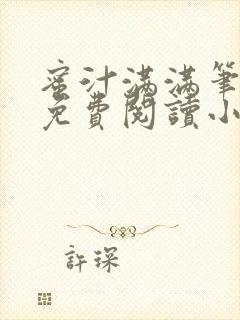 蜜汁满满筆
免費閱讀小
許琛